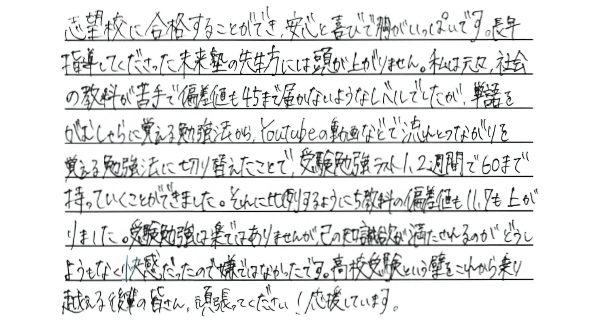 志望校に合格することができ、安心と喜びで胸がいっぱいです。長年
指導してくださった未来塾の先生方には頭が上がりません。私は元々、社会
の教科が苦手で偏差値も45まで届かないようなレベルでしたが、単語を
がむしゃらに覚える勉強法から、Youtubeの動画などで流れとつながりを
覚える勉強法に切り替えたことで、受験勉強ラスト1,2週間で60まで
持っていくことができました。それに比例するように5教科の偏差値も11.7も上が
りました。受験勉強は楽ではありませんが、己の知識欲が満たされるのがどうし
ようもなく快感だったので嫌ではなかったです。高校受験という壁をこれから乗り
越える後輩の皆さん、頑張ってください!応援しています。